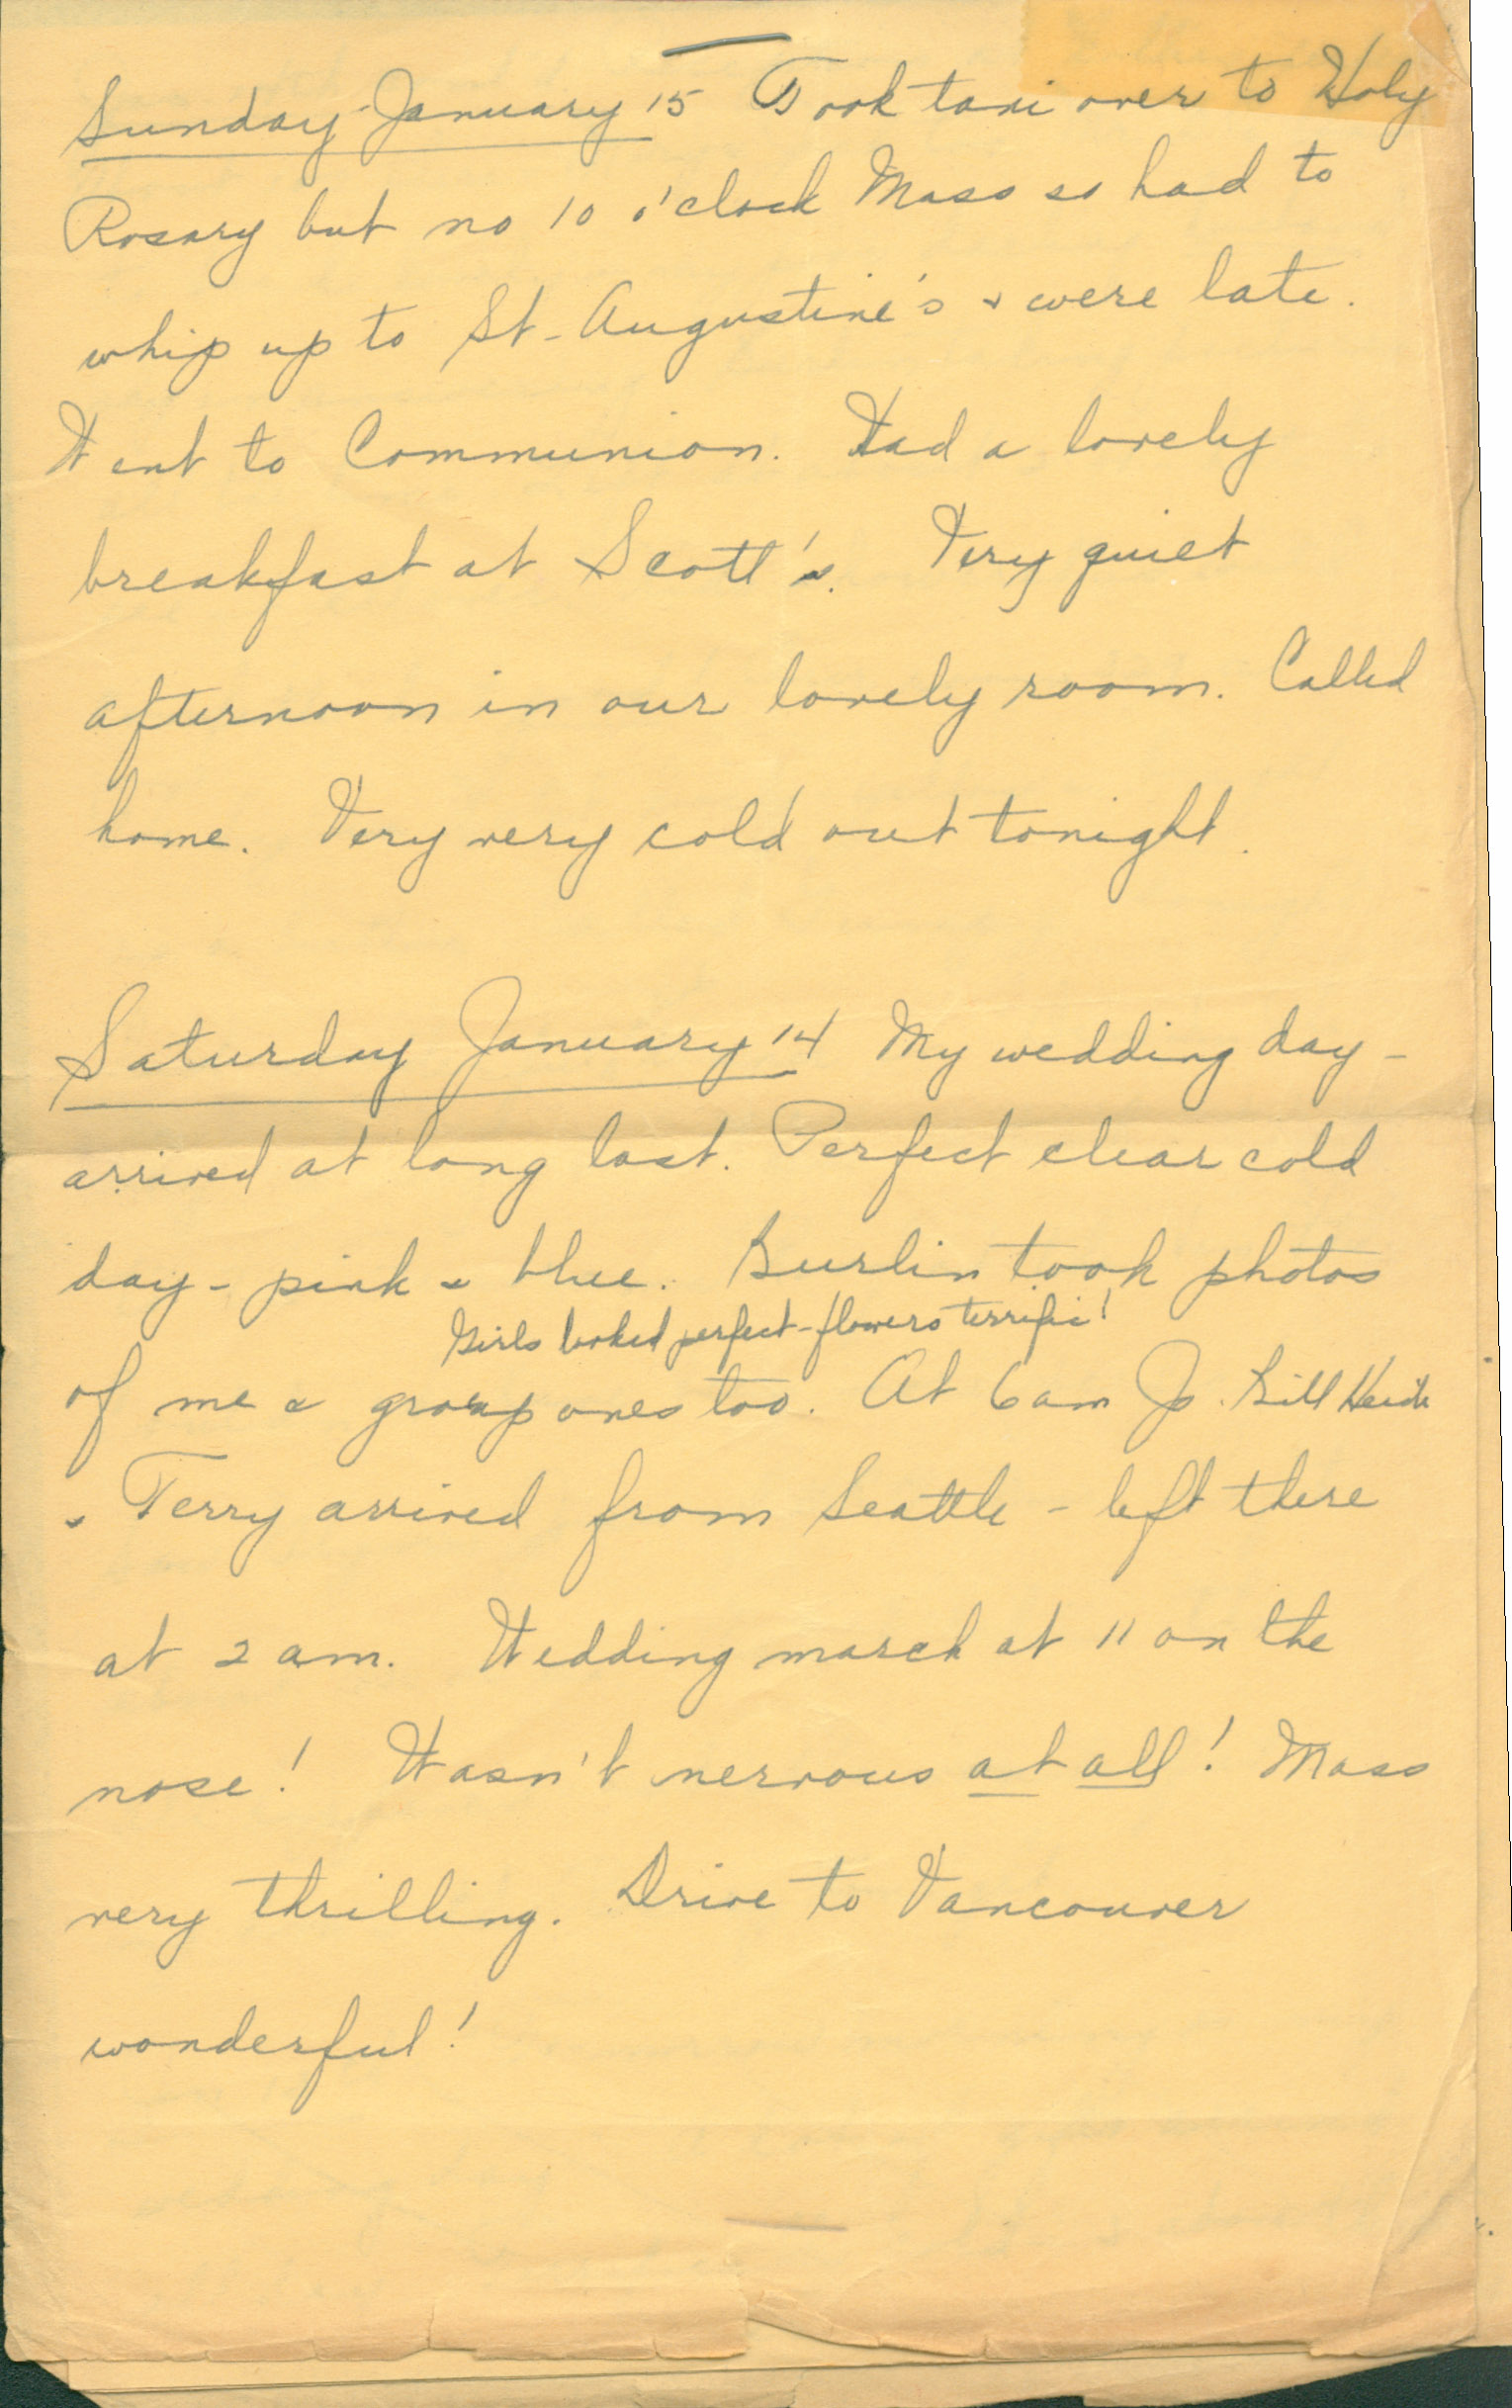 Sunday January 15 Took taxi over to Holy
Rosary but no 10 o'clock Mass so had to
whip up to St. Augustine's & were late.
Went to Communion. Had a lovely
breakfast at Scott's. Very quiet
afternoon in our lovely room. Called
home. Very very cold out tonight.
Saturday January 14 My wedding day -
arrived at long last. Perfect clear cold
day - pink & blue. Burlin took photos
Girls looked perfect - flowers terrific!
of me & group ones too. At 6 am Jo. Bill
& Terry arrived from Seattle - left there
at 2 am. Wedding march at 11 on the
nose! Wasn't nervous at all! Mass
very thrilling. Drive to Vancouver
wonderful!